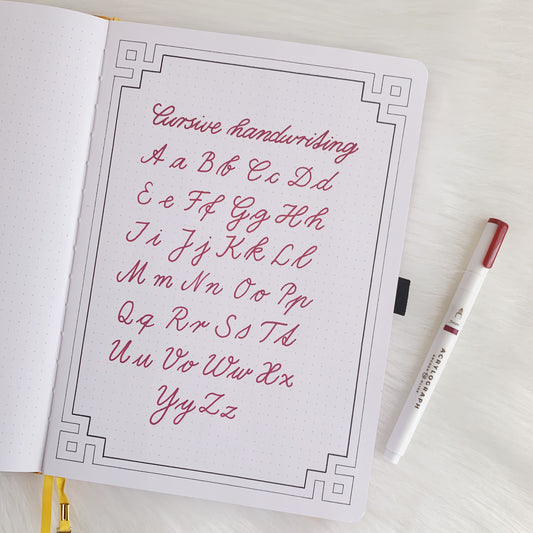 Cursive handwriting
A a B b C c D d
E e F f G g H h
I i J j K k L l
M m N n O o P p
Q q R r S s T t
U u V v W w X x
Y y Z z
ACRYLOGRAPH